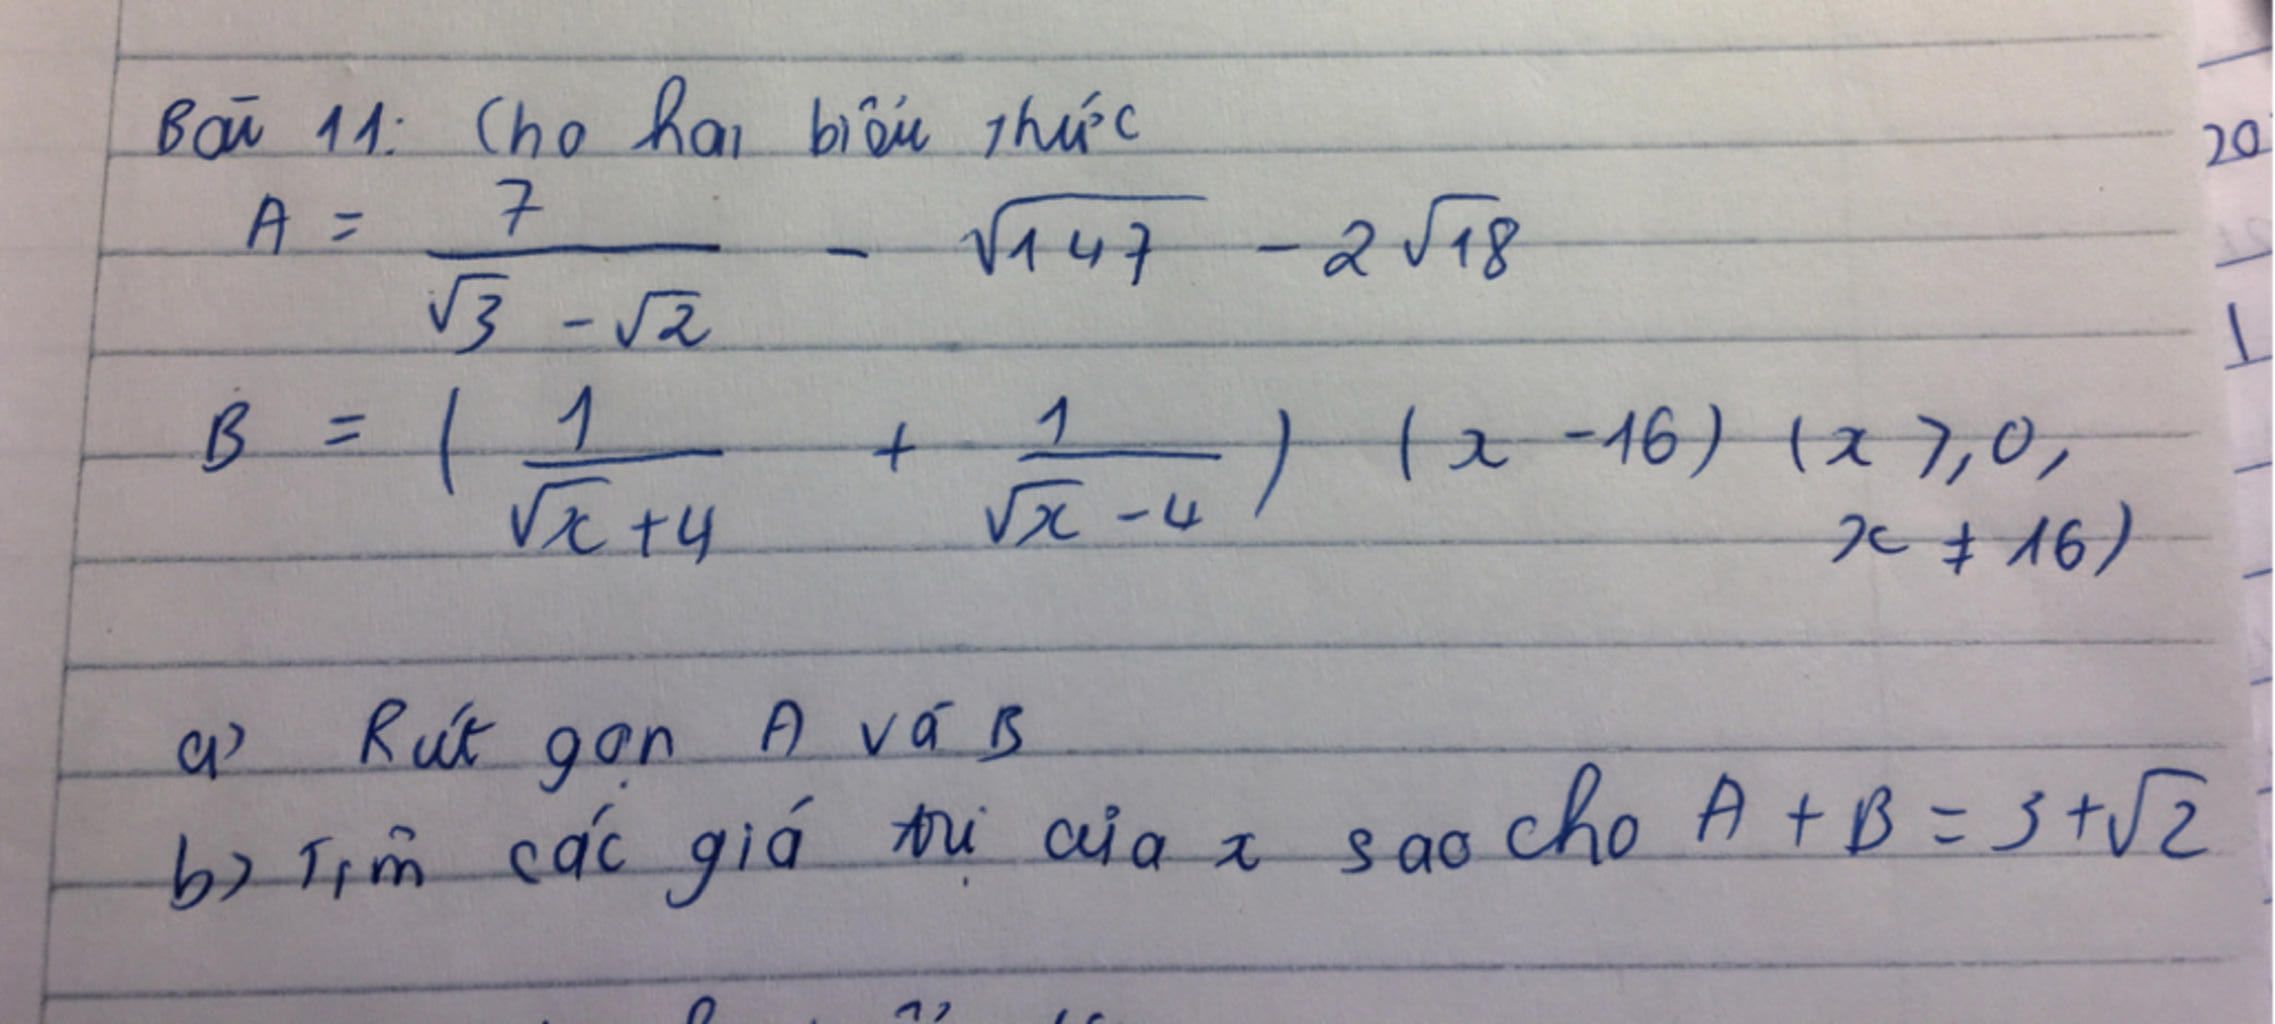 Bài 11: Cho hai biểu thức
A = 7/(√3 - √2) - √147 - 2√18
B = (1/(√x + 4) + 1/(√x - 4)) (x - 16) (x ≥ 0,
x ≠ 16)
a) Rút gọn A và B
b) Tìm các giá trị của x sao cho A + B = 3 + √2
20